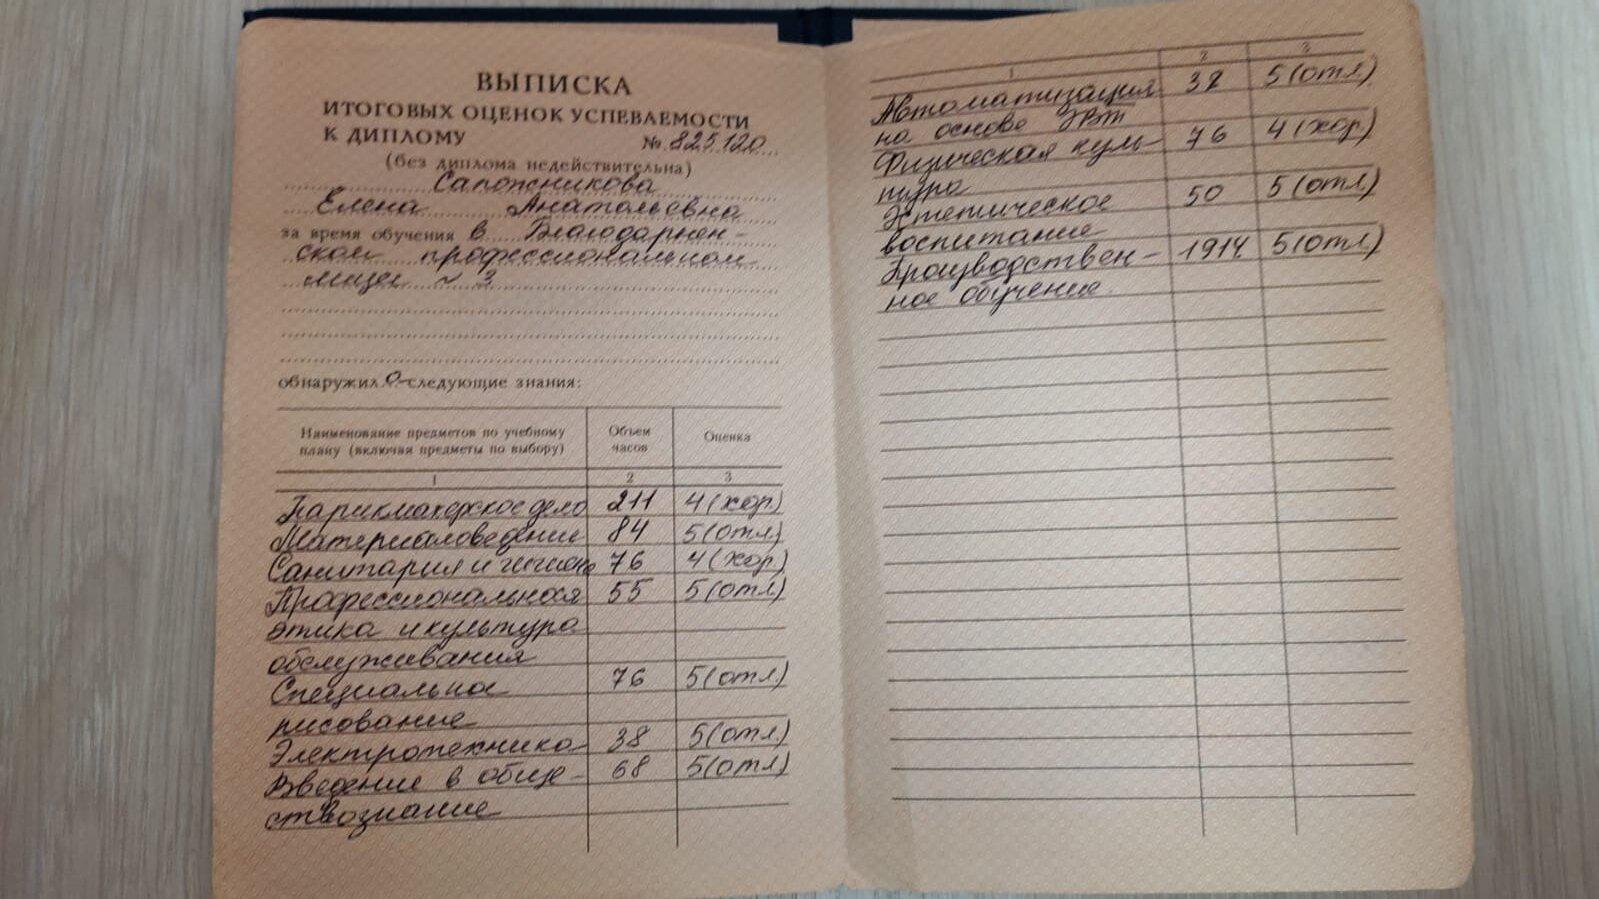 ВЫПИСКА
ИТОГОВЫХ ОЦЕНОК УСПЕВАЕМОСТИ
К ДИПЛОМУ № 825120
(без диплома недействительна)
Сапожникова
Елена Анатольевна
за время обучения в Благодарнен-
ском профессиональном
лицее № 3
обнаружила следующие знания:
Наименование предметов по учебному плану (включая предметы по выбору) Объем часов Оценка
1 2 3
Парикмахерское дело 211 4 (хор.)
Материаловедение 84 5 (отл.)
Санитария и гигиена 76 4 (хор)
Профессиональная 55 5 (отл)
этика и культура
обслуживания
Специальное 76 5 (отл.)
рисование
Электротехника 38 5 (отл.)
Введение в обще- 68 5 (отл)
ствознание
1 2 3
Автоматизация 38 5 (отл.)
на основе ЭВТ
Физическая куль- 76 4 (хор.)
тура
Эстетическое 50 5 (отл)
воспитание
Производствен- 1914 5 (отл)
ное обучение